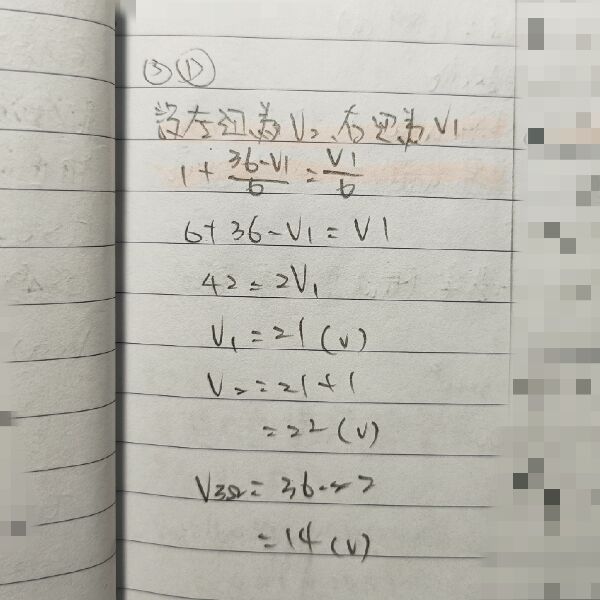 ③ ①
設左迴為V₂、右迴為V1
1 + (36-V1)/6 = V1/6
6+36-V₁=V1
42=2V₁
V₁=21(V)
V₂=21+1
=22(V)
V3Ω=36-22
=14(V)